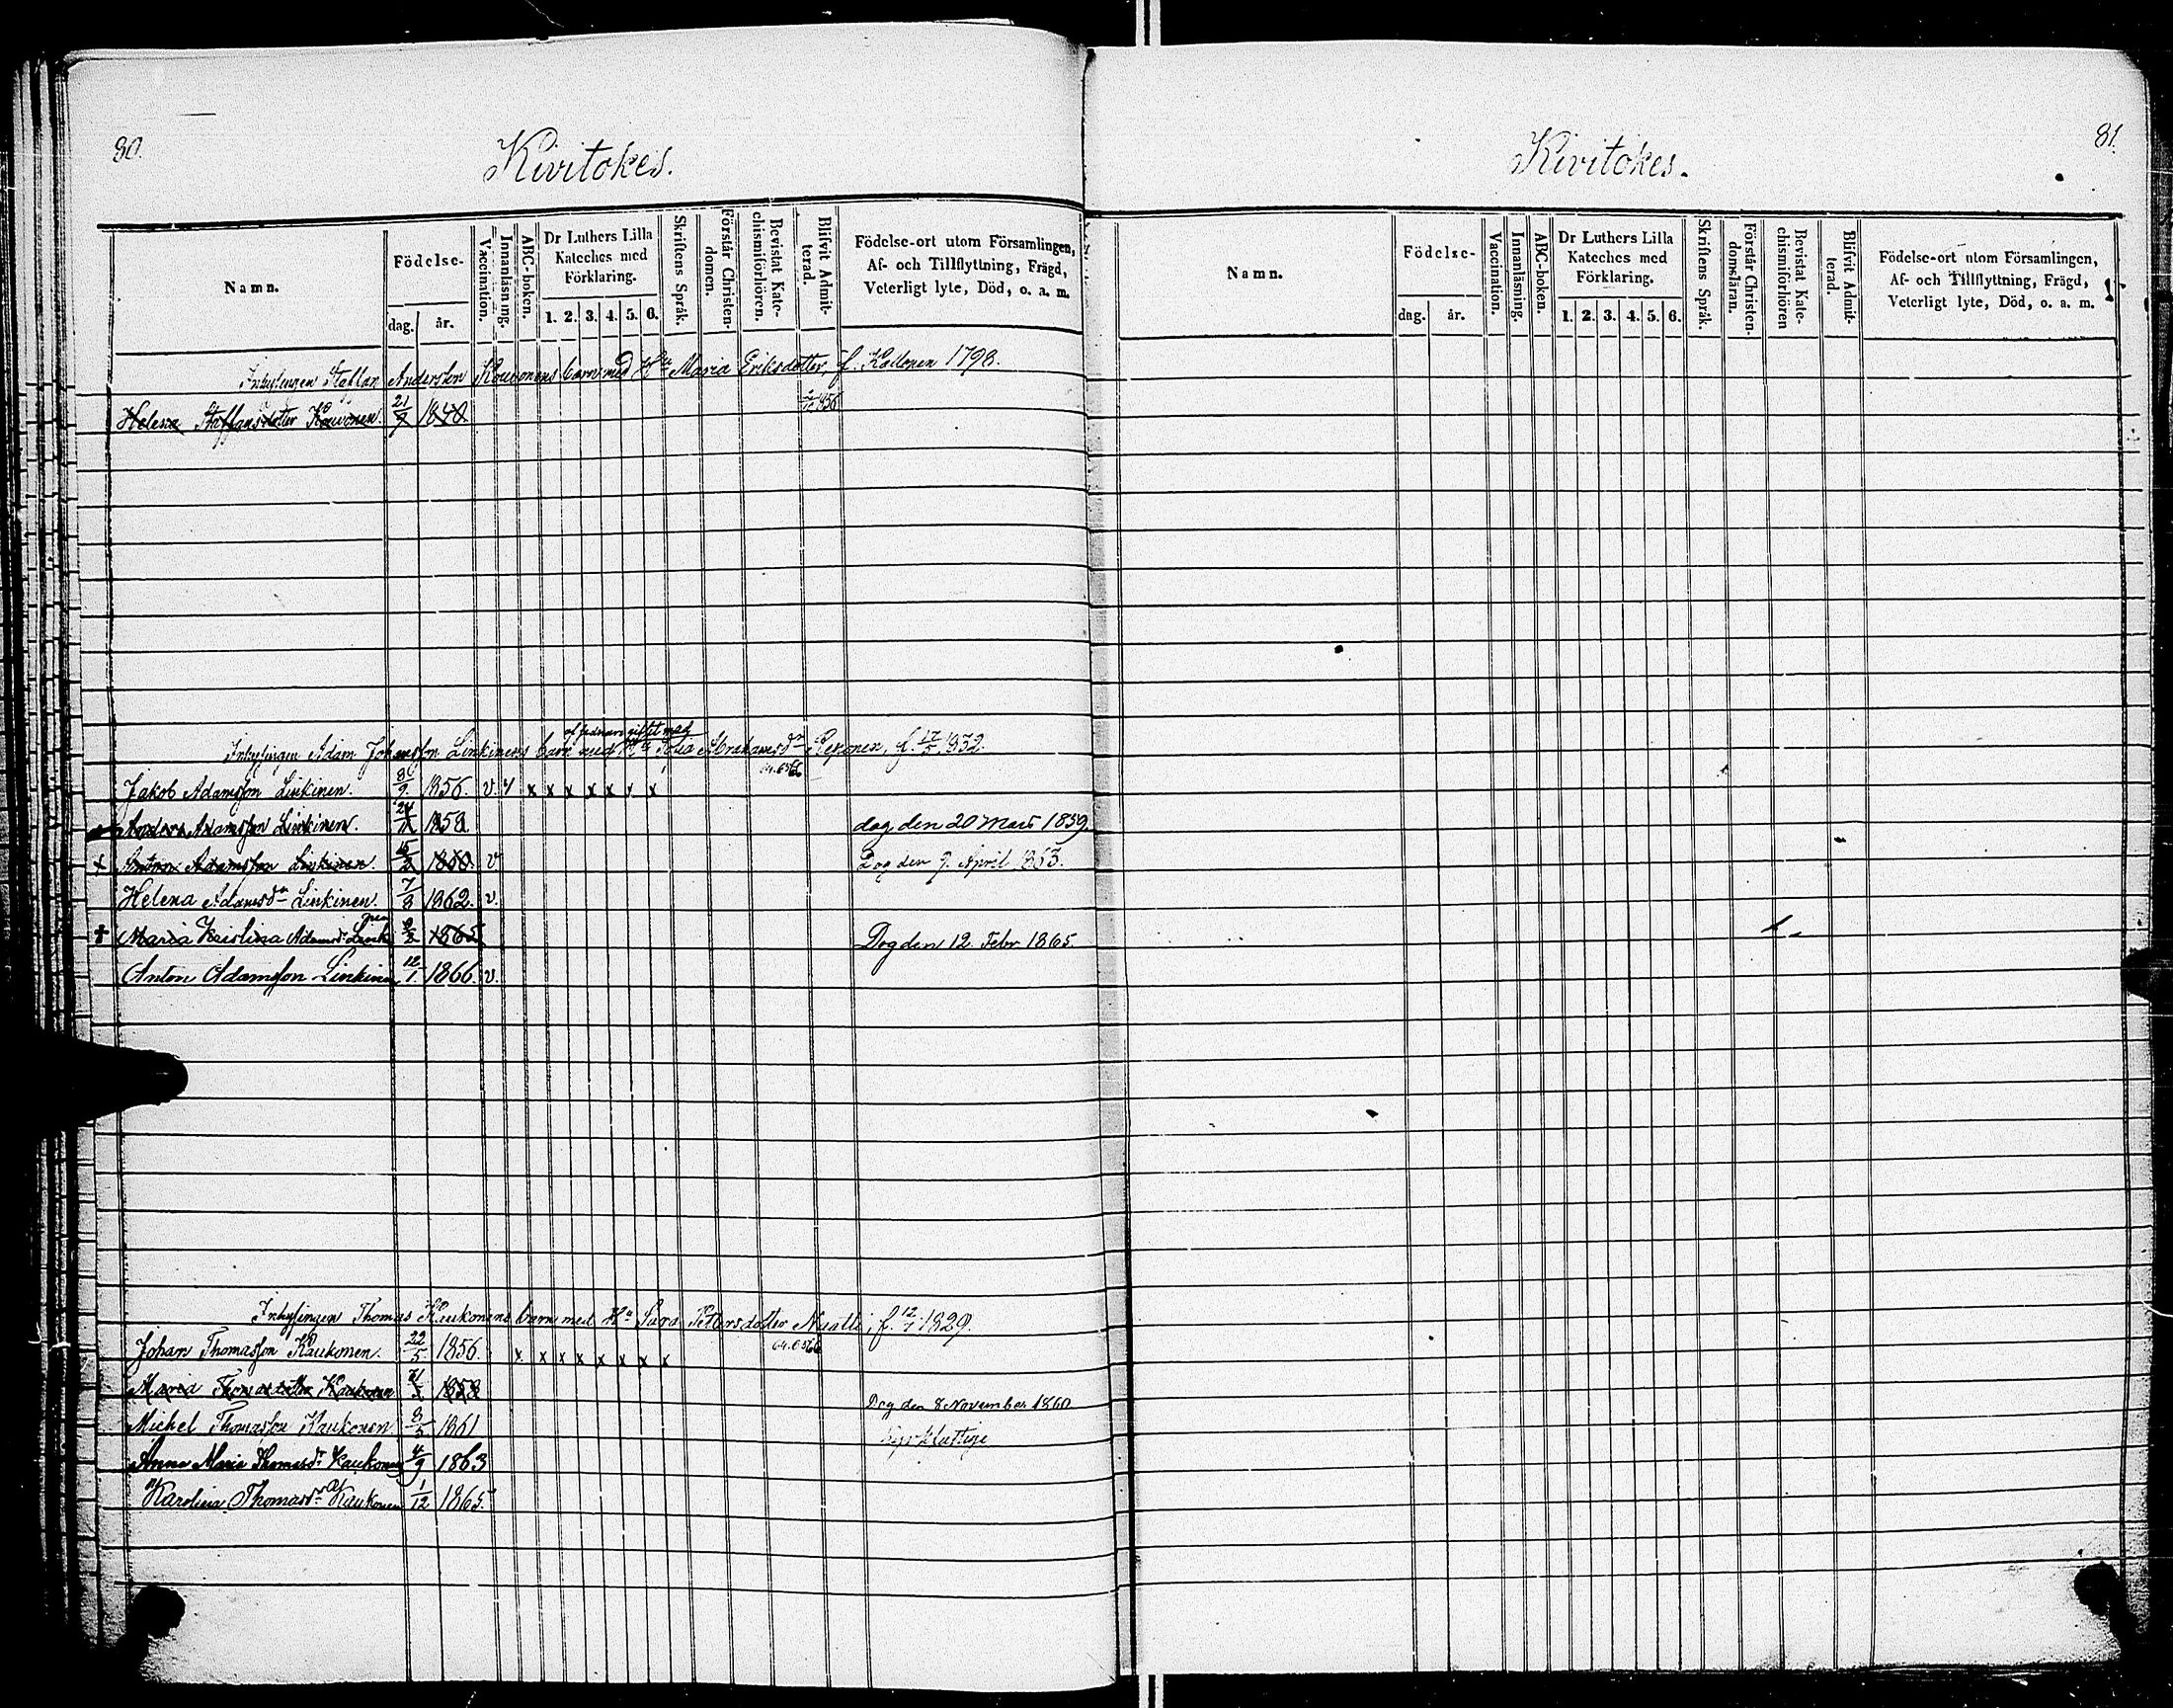 80.
Kivitokes.
Namn.
Födelse-
dag. år.
Vaccination.
Innanläsning.
ABC-boken.
Dr Luthers Lilla Kateches med Förklaring.
1. 2. 3. 4. 5. 6.
Skriftens Språk.
Förstår Christen-domen.
Bevistat Kate-chismiförhören.
Blifvit Admit-terad.
Födelse-ort utom Församlingen, Af- och Tillflyttning, Frägd, Veterligt lyte, Död, o. a. m.
Inhysingen Staffan Andersson Kouvonens barn med Hu Maria Eriksdotter, f. 1798.
Helena Staffansdotter Kouvonen. 21/9 1840. 1856
af fadren giftet med
Inhysingen Adam Johansson Linkinens barn med Hu Sofia Abrahamsdr f. 17/5 1832.
64.65 66
Jakob Adamsson Linkinen. 8/9 1856. v. x x x x x x x
Anders Adamsson Linkinen. 24/11 1858. dog den 20 Mars 1859.
x Anton Adamsson Linkinen. 15/2 1860. v Dog den 9. April 1863.
Helena Adamsdr Linkinen. 7/8 1862. v.
† Maria Kristina Adamsdr 1865 Dog den 12. Febr 1865.
Anton Adamsson Linkinen 12/1 1866. v.
Inhysingen Thomas Kaukonens barn med Hu Sara Petersdotter f. 12/7 1829.
64.65 66
Johan Thomasson Kaukonen. 22/5 1856. x x x x x x x x
Maria Thomasdotter Kaukonen 1858 Dog den 8 November 1860
Michel Thomasson Kaukonen 8/5 1861
Anna Maria Thomasdr Kaukonen 4/9 1863
Karolina Thomasdr Kaukonen 1/12 1865
81.
Kivitokes.
Namn.
Födelse-
dag. år.
Vaccination.
Innanläsning.
ABC-boken.
Dr Luthers Lilla Kateches med Förklaring.
1. 2. 3. 4. 5. 6.
Skriftens Språk.
Förstår Christen-domsläran.
Bevistat Kate-chismiförhören
Blifvit Admit-terad.
Födelse-ort utom Församlingen, Af- och Tillflyttning, Frägd, Veterligt lyte, Död, o. a. m.